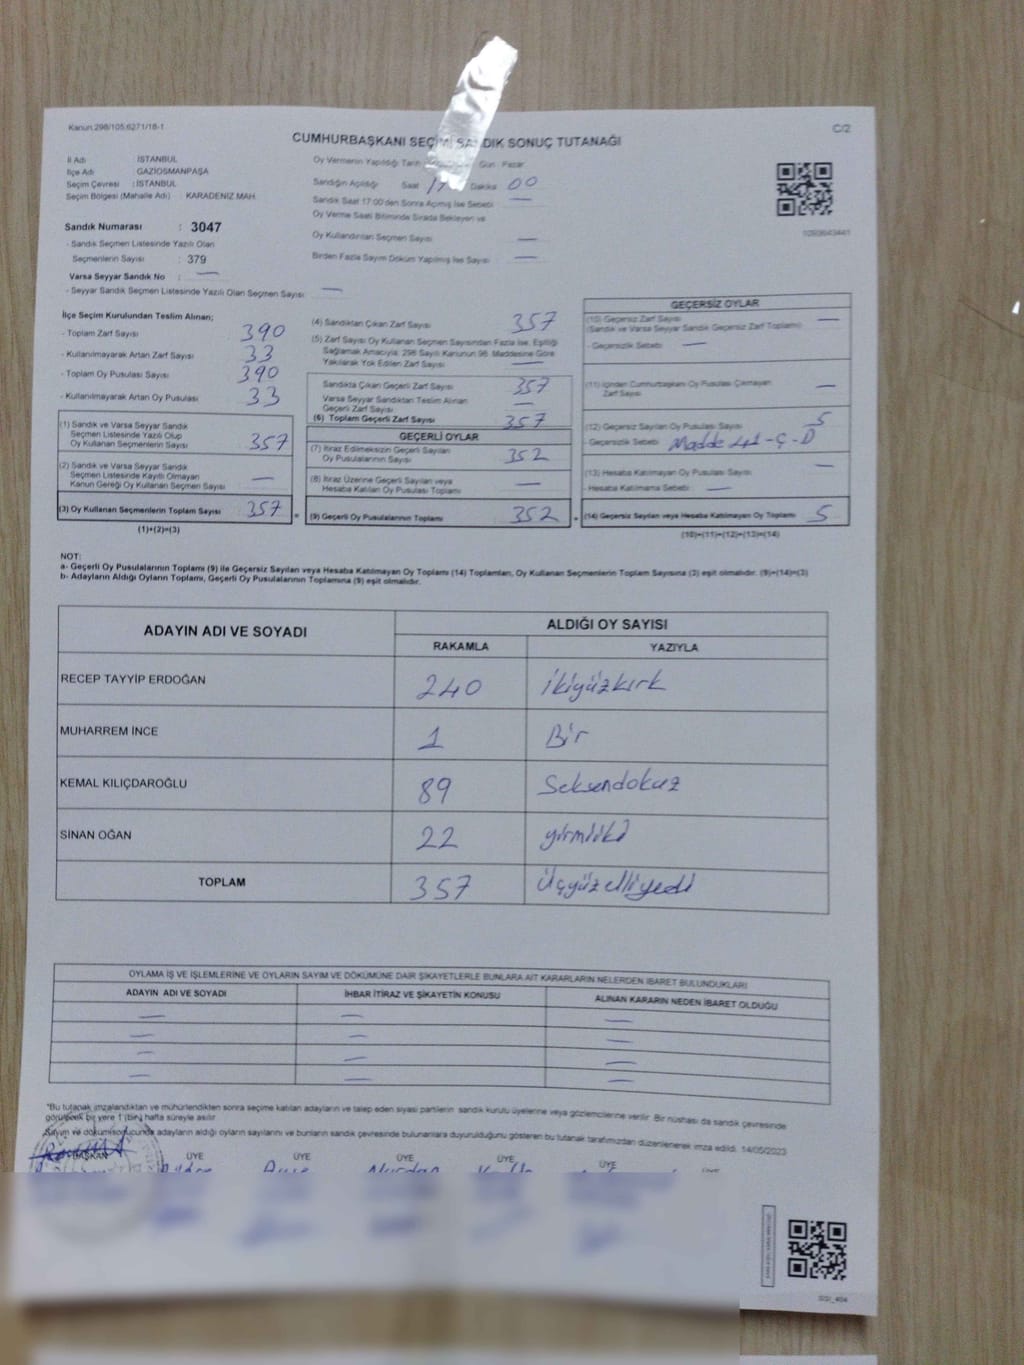 Kanun:298/105,6271/18-1
C/2
CUMHURBAŞKANI SEÇİMİ SANDIK SONUÇ TUTANAĞI
İl Adı : İSTANBUL
İlçe Adı : GAZİOSMANPAŞA
Seçim Çevresi : İSTANBUL
Seçim Bölgesi (Mahalle Adı) : KARADENİZ MAH.
Sandık Numarası : 3047
- Sandık Seçmen Listesinde Yazılı Olan
Seçmenlerin Sayısı : 379
Varsa Seyyar Sandık No : —
- Seyyar Sandık Seçmen Listesinde Yazılı Olan Seçmen Sayısı : —
Oy Vermenin Yapıldığı Tarih Gün : Pazar
Sandığın Açıldığı Saat Dakika 00
Sandık Saat 17:00'den Sonra Açılmış İse Sebebi : —
Oy Verme Saati Bitiminde Sırada Bekleyen ve
Oy Kullandırılan Seçmen Sayısı —
Birden Fazla Sayım Döküm Yapılmış İse Sayısı : —
İlçe Seçim Kurulundan Teslim Alınan;
- Toplam Zarf Sayısı 390
- Kullanılmayarak Artan Zarf Sayısı 33
- Toplam Oy Pusulası Sayısı 390
- Kullanılmayarak Artan Oy Pusulası 33
(1) Sandık ve Varsa Seyyar Sandık
Seçmen Listesinde Yazılı Olup
Oy Kullanan Seçmenlerin Sayısı 357
(2) Sandık ve Varsa Seyyar Sandık
Seçmen Listesinde Kayıtlı Olmayan
Kanun Gereği Oy Kullanan Seçmen Sayısı —
(3) Oy Kullanan Seçmenlerin Toplam Sayısı 357
(1)+(2)=(3)
(4) Sandıktan Çıkan Zarf Sayısı 357
(5) Zarf Sayısı Oy Kullanan Seçmen Sayısından Fazla İse, Eşitliği
Sağlamak Amacıyla; 298 Sayılı Kanunun 98. Maddesine Göre
Yakılarak Yok Edilen Zarf Sayısı —
Sandıkta Çıkan Geçerli Zarf Sayısı 357
Varsa Seyyar Sandıktan Teslim Alınan
Geçerli Zarf Sayısı —
(6) Toplam Geçerli Zarf Sayısı 357
GEÇERLİ OYLAR
(7) İtiraz Edilmeksizin Geçerli Sayılan
Oy Pusulalarının Sayısı 352
(8) İtiraz Üzerine Geçerli Sayılan veya
Hesaba Katılan Oy Pusulası Toplamı —
(9) Geçerli Oy Pusulalarının Toplamı 352
GEÇERSİZ OYLAR
(10) Geçersiz Zarf Sayısı —
(Sandık ve Varsa Seyyar Sandık Geçersiz Zarf Toplamı)
- Geçersizlik Sebebi : —
(11) İçinden Cumhurbaşkanı Oy Pusulası Çıkmayan
Zarf Sayısı —
(12) Geçersiz Sayılan Oy Pusulası Sayısı 5
- Geçersizlik Sebebi : Madde 41-Ç-D
(13) Hesaba Katılmayan Oy Pusulası Sayısı —
- Hesaba Katılmama Sebebi : —
(14) Geçersiz Sayılan veya Hesaba Katılmayan Oy Toplamı 5
(10)+(11)+(12)+(13)=(14)
NOT:
a- Geçerli Oy Pusulalarının Toplamı (9) ile Geçersiz Sayılan veya Hesaba Katılmayan Oy Toplamı (14) Toplamları, Oy Kullanan Seçmenlerin Toplam Sayısına (3) eşit olmalıdır. (9)+(14)=(3)
b- Adayların Aldığı Oyların Toplamı, Geçerli Oy Pusulalarının Toplamına (9) eşit olmalıdır.
ADAYIN ADI VE SOYADI ALDIĞI OY SAYISI
RAKAMLA YAZIYLA
RECEP TAYYİP ERDOĞAN 240 ikiyüzkırk
MUHARREM İNCE 1 Bir
KEMAL KILIÇDAROĞLU 89 Seksendokuz
SİNAN OĞAN 22 yirmiiki
TOPLAM 357 Üçyüzelliyedi
OYLAMA İŞ VE İŞLEMLERİNE VE OYLARIN SAYIM VE DÖKÜMÜNE DAİR ŞİKAYETLERLE BUNLARA AİT KARARLARIN NELERDEN İBARET BULUNDUKLARI
ADAYIN ADI VE SOYADI İHBAR İTİRAZ VE ŞİKAYETİN KONUSU ALINAN KARARIN NEDEN İBARET OLDUĞU
— — —
— — —
— — —
— — —
*Bu tutanak imzalandıktan ve mühürlendikten sonra seçime katılan adayların ve talep eden siyasi partilerin sandık kurulu üyelerine veya gözlemcilerine verilir. Bir nüshası da sandık çevresinde
görülecek bir yere 1 (bir) hafta süreyle asılır.
Sayım ve dökümü sonucunda adayların aldığı oyların sayılarını ve bunların sandık çevresinde bulunanlara duyurulduğunu gösteren bu tutanak tarafımızdan düzenlenerek imza edildi. 14/05/2023
BAŞKAN ÜYE ÜYE ÜYE ÜYE ÜYE ÜYE